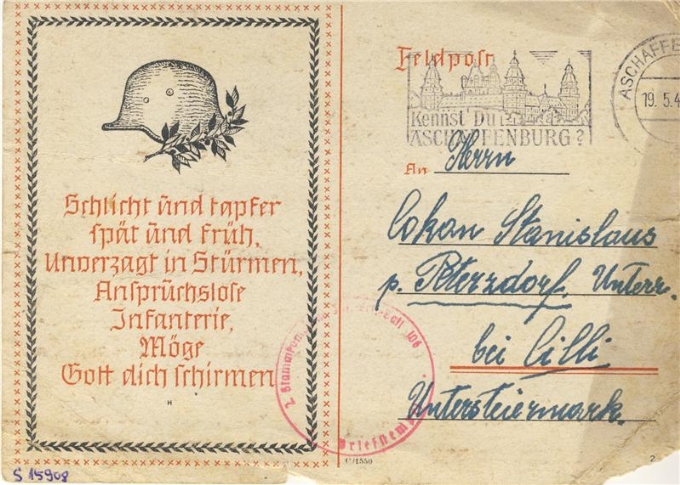 Schlicht und tapfer
spät und früh,
Unverzagt in Stürmen,
Anspruchslose
Infanterie,
Möge
Gott dich schirmen
H
S 15908
Feldpost
Kennst Du
ASCHAFFENBURG?
ASCHAFFE
19.5.4
An Herrn
Cokan Stanislaus
p. Peterzdorf. Unterr.
bei Cilli
Untersteiermark.
2. Stammkom
Briefstem
C/1550
2